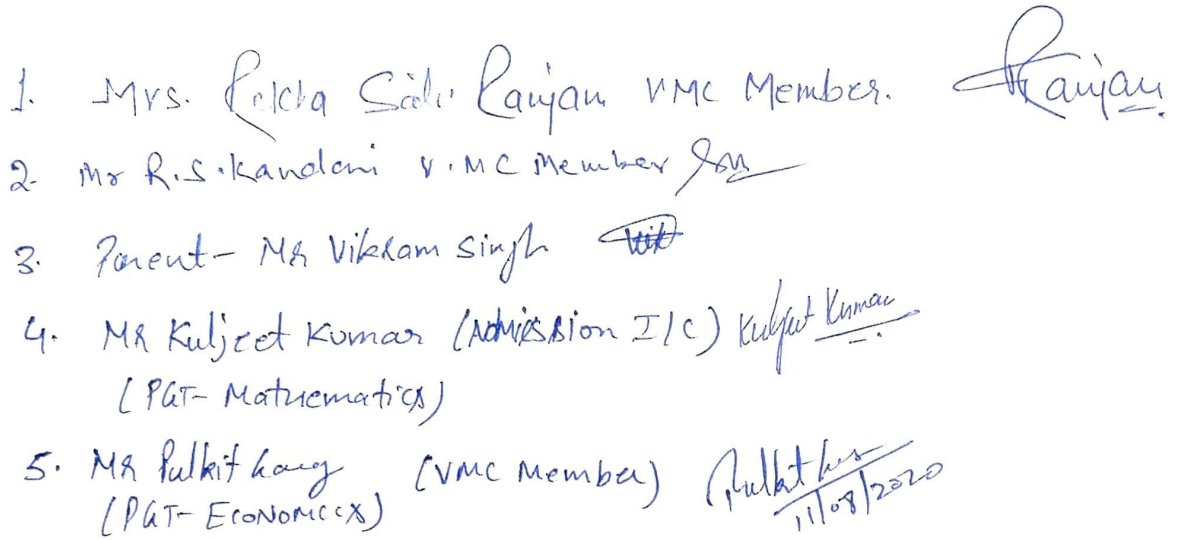 1. Mrs. Rekha Ranjan VMC Member. Ranjan
2. Mr R.S. Kandani V.MC Member
3. Parent- Mr Vikram Singh Vik
4. Mr Kuljeet Kumar (Admission I/C) Kuljeet Kumar
(PGT- Mathematics)
5. Mr Pulkit (VMC Member) Pulkit
(PGT- Economics) 11/08/2020